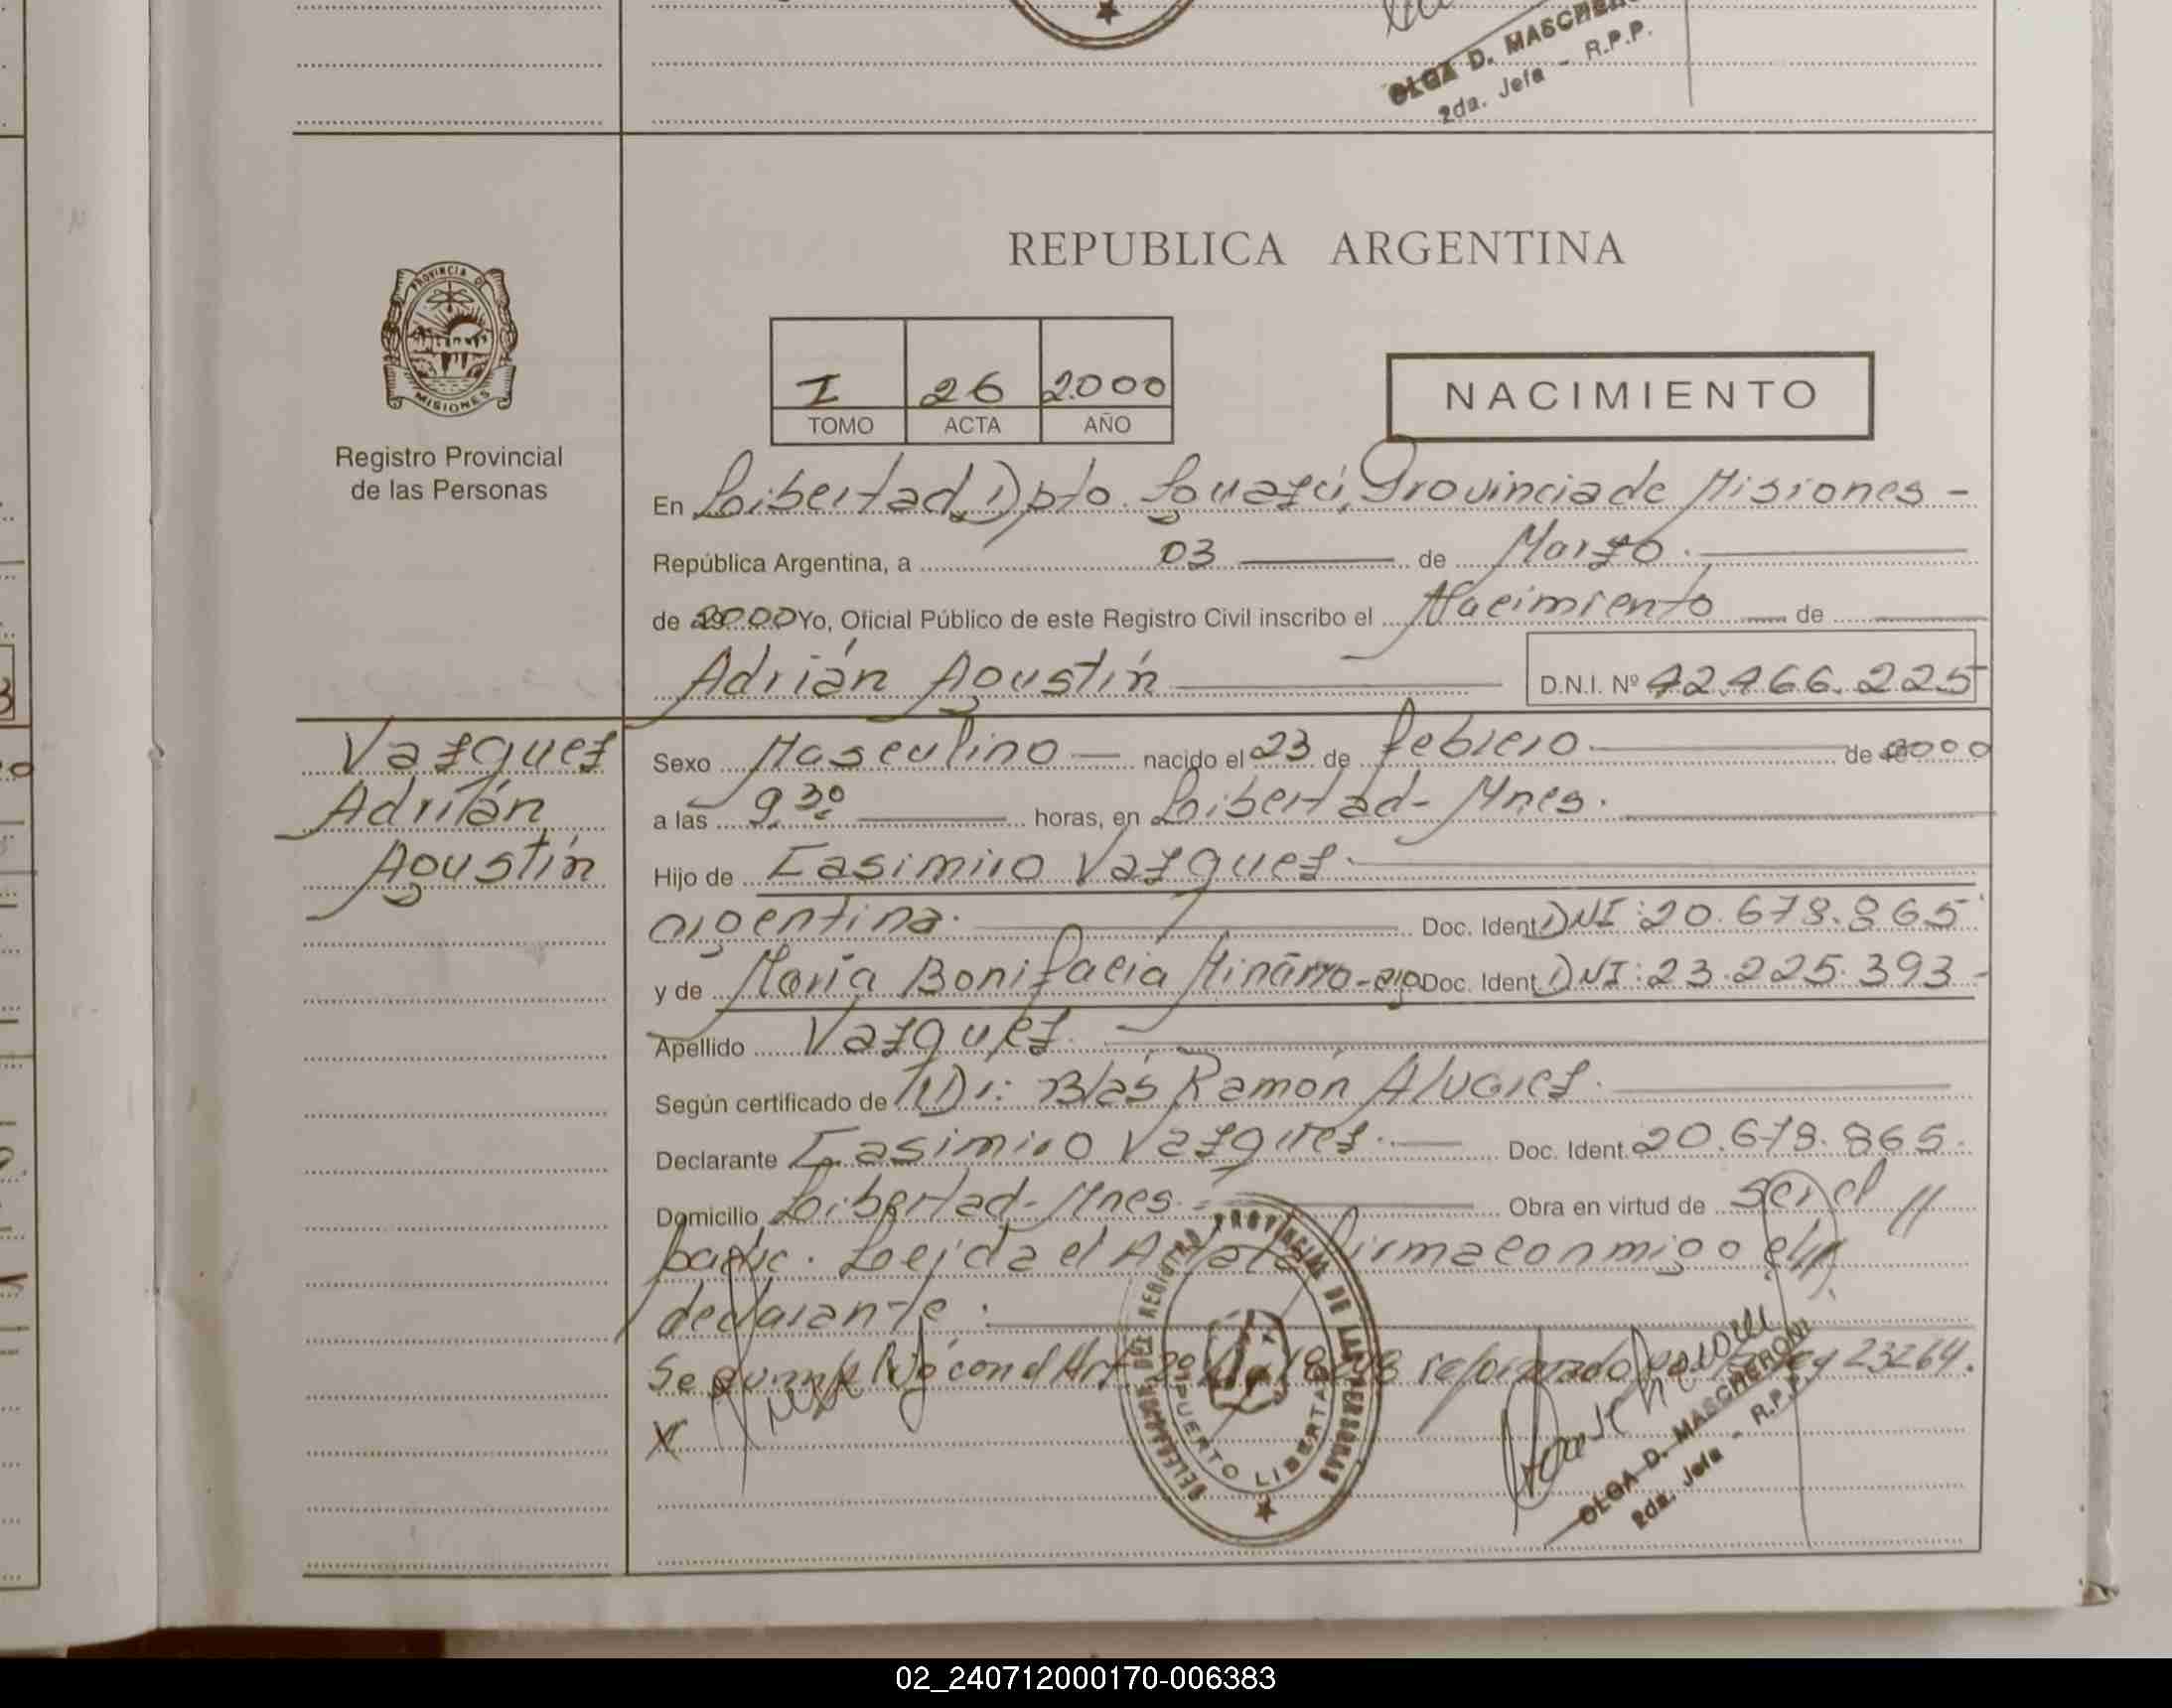 OLGA D. MASCHERO
2da. Jefa - R.P.P.
PROVINCIA DE
MISIONES
Registro Provincial
de las Personas
REPUBLICA ARGENTINA
I 26 2.000
TOMO ACTA AÑO
NACIMIENTO
En Libertad, Dpto. Iguazú, Provincia de Misiones -
República Argentina, a 03 de Marzo.
de 2000 Yo, Oficial Público de este Registro Civil inscribo el Nacimiento de
Adrián Agustín D.N.I. Nº 42.466.225
Vazquez
Adrián
Agustín
Sexo Masculino nacido el 23 de febrero. de 2000
a las 9.30 horas, en Libertad - Mnes.
Hijo de Casimiro Vazquez.
argentina. Doc. Ident. DNI: 20.678.865.
y de María Bonifacia Miñarro - arg Doc. Ident. DNI: 23.225.393 -
Apellido Vazquez.
Según certificado de Blás Ramón Alvarez.
Declarante Casimiro Vazquez. Doc. Ident. 20.678.865.
Domicilio Libertad - Mnes. Obra en virtud de ser el //
padre. Leída el Acta firma conmigo el
declarante.
Se cumplió con el Art. 2º 18248 reformado Ley 23264.
X
REGISTRO PROVINCIAL DE LAS PERSONAS
PUERTO LIBERTAD
OLGA D. MASCHERONI
2da. Jefa - R.P.P.
02_240712000170-006383